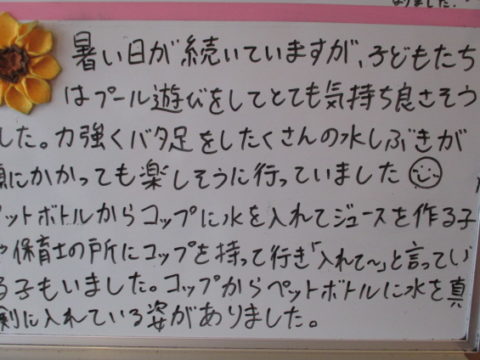 なりました。
暑い日が続いていますが、子どもたち
はプール遊びをしてとても気持ち良さそう
した。力強くバタ足をしたくさんの水しぶきが
にかかっても楽しそうに行っていました
ットボトルからコップに水を入れてジュースを作る子
や保育士の戸所にコップを持って行き「入れて〜」と言ってい
る子もいました。コップからペットボトルに水を真
剣に入れている姿がありました。